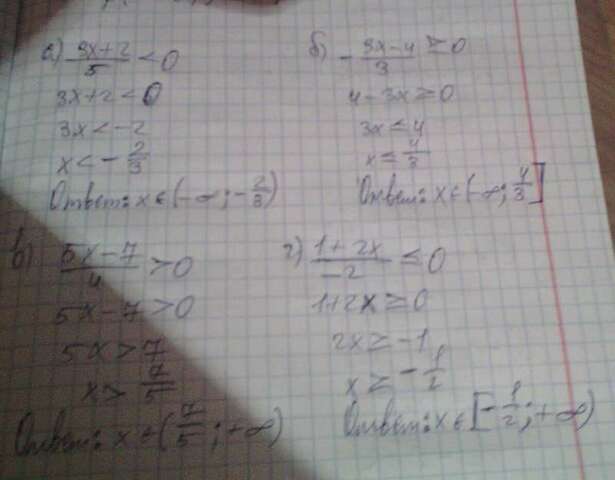 а) (3x+2)/5 < 0
3x+2 < 0
3x < -2
x < -2/3
Ответ: x ∈ (-∞; -2/3)
б) -(3x-4)/3 ≥ 0
4-3x ≥ 0
3x ≤ 4
x ≤ 4/3
Ответ: x ∈ (-∞; 4/3]
в) (5x-7)/4 > 0
5x-7 > 0
5x > 7
x > 7/5
Ответ: x ∈ (7/5; +∞)
г) (1+2x)/(-2) ≤ 0
1+2x ≥ 0
2x ≥ -1
x ≥ -1/2
Ответ: x ∈ [-1/2; +∞)